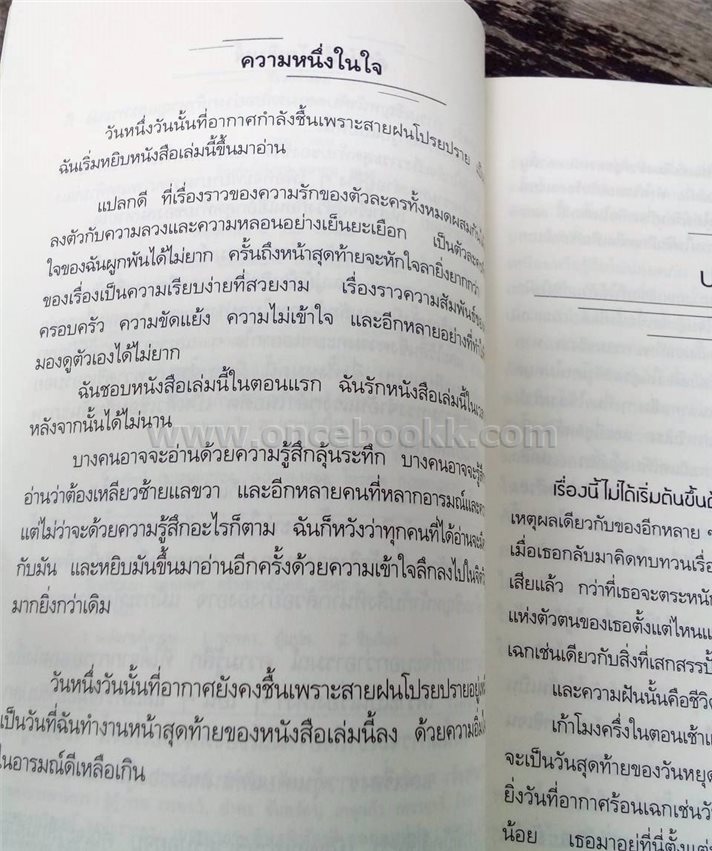 ความหนึ่งในใจ
วันหนึ่งวันนั้นที่อากาศกำลังชื้นเพราะสายฝนโปรยปราย
ฉันเริ่มหยิบหนังสือเล่มนี้ขึ้นมาอ่าน
แปลกดี ที่เรื่องราวของความรักของตัวละครทั้งหมดผสมกัน
ลงตัวกับความลวงและความหลอนอย่างเย็นยะเยือก เป็นตัวละคร
ใจของฉันผูกพันได้ไม่ยาก ครั้นถึงหน้าสุดท้ายจะหักใจลายิ่งยากกว่า
ของเรื่องเป็นความเรียบง่ายที่สวยงาม เรื่องราวความสัมพันธ์ของ
ครอบครัว ความขัดแย้ง ความไม่เข้าใจ และอีกหลายอย่างที่ทำให้
มองดูตัวเองได้ไม่ยาก
ฉันชอบหนังสือเล่มนี้ในตอนแรก ฉันรักหนังสือเล่มนี้ใน
หลังจากนั้นได้ไม่นาน
www.oncebookk.com
บางคนอาจจะอ่านด้วยความรู้สึกลุ้นระทึก บางคนอาจจะรู้สึก
อ่านว่าต้องเหลียวซ้ายแลขวา และอีกหลายคนที่หลากอารมณ์และ
แต่ไม่ว่าจะด้วยความรู้สึกอะไรก็ตาม ฉันก็หวังว่าทุกคนที่ได้อ่านจะ
กับมัน และหยิบมันขึ้นมาอ่านอีกครั้งด้วยความเข้าใจลึกลงไปใน
มากยิ่งกว่าเดิม
วันหนึ่งวันนั้นที่อากาศยังคงชื้นเพราะสายฝนโปรยปรายอยู่
เป็นวันที่ฉันทำงานหน้าสุดท้ายของหนังสือเล่มนี้ลง ด้วยความ
ในอารมณ์ดีเหลือเกิน
เรื่องนี้ไม่ได้เริ่มต้นขึ้นด้
เหตุผลเดียวกับของอีกหลาย ๆ
เมื่อเธอกลับมาคิดทบทวนเรื่อ
เสียแล้ว กว่าที่เธอจะตระหนัก
แห่งตัวตนของเธอตั้งแต่ไหนแ
เฉกเช่นเดียวกับสิ่งที่เสกสรรปั้
และความฝันนั้นคือชีวิ
เก้าโมงครึ่งในตอนเช้าแ
จะเป็นวันสุดท้ายของวันหยุด
ยิ่งวันที่อากาศร้อนเฉกเช่นวั
น้อย เธอมาอยู่ที่นี่ตั้งแต่